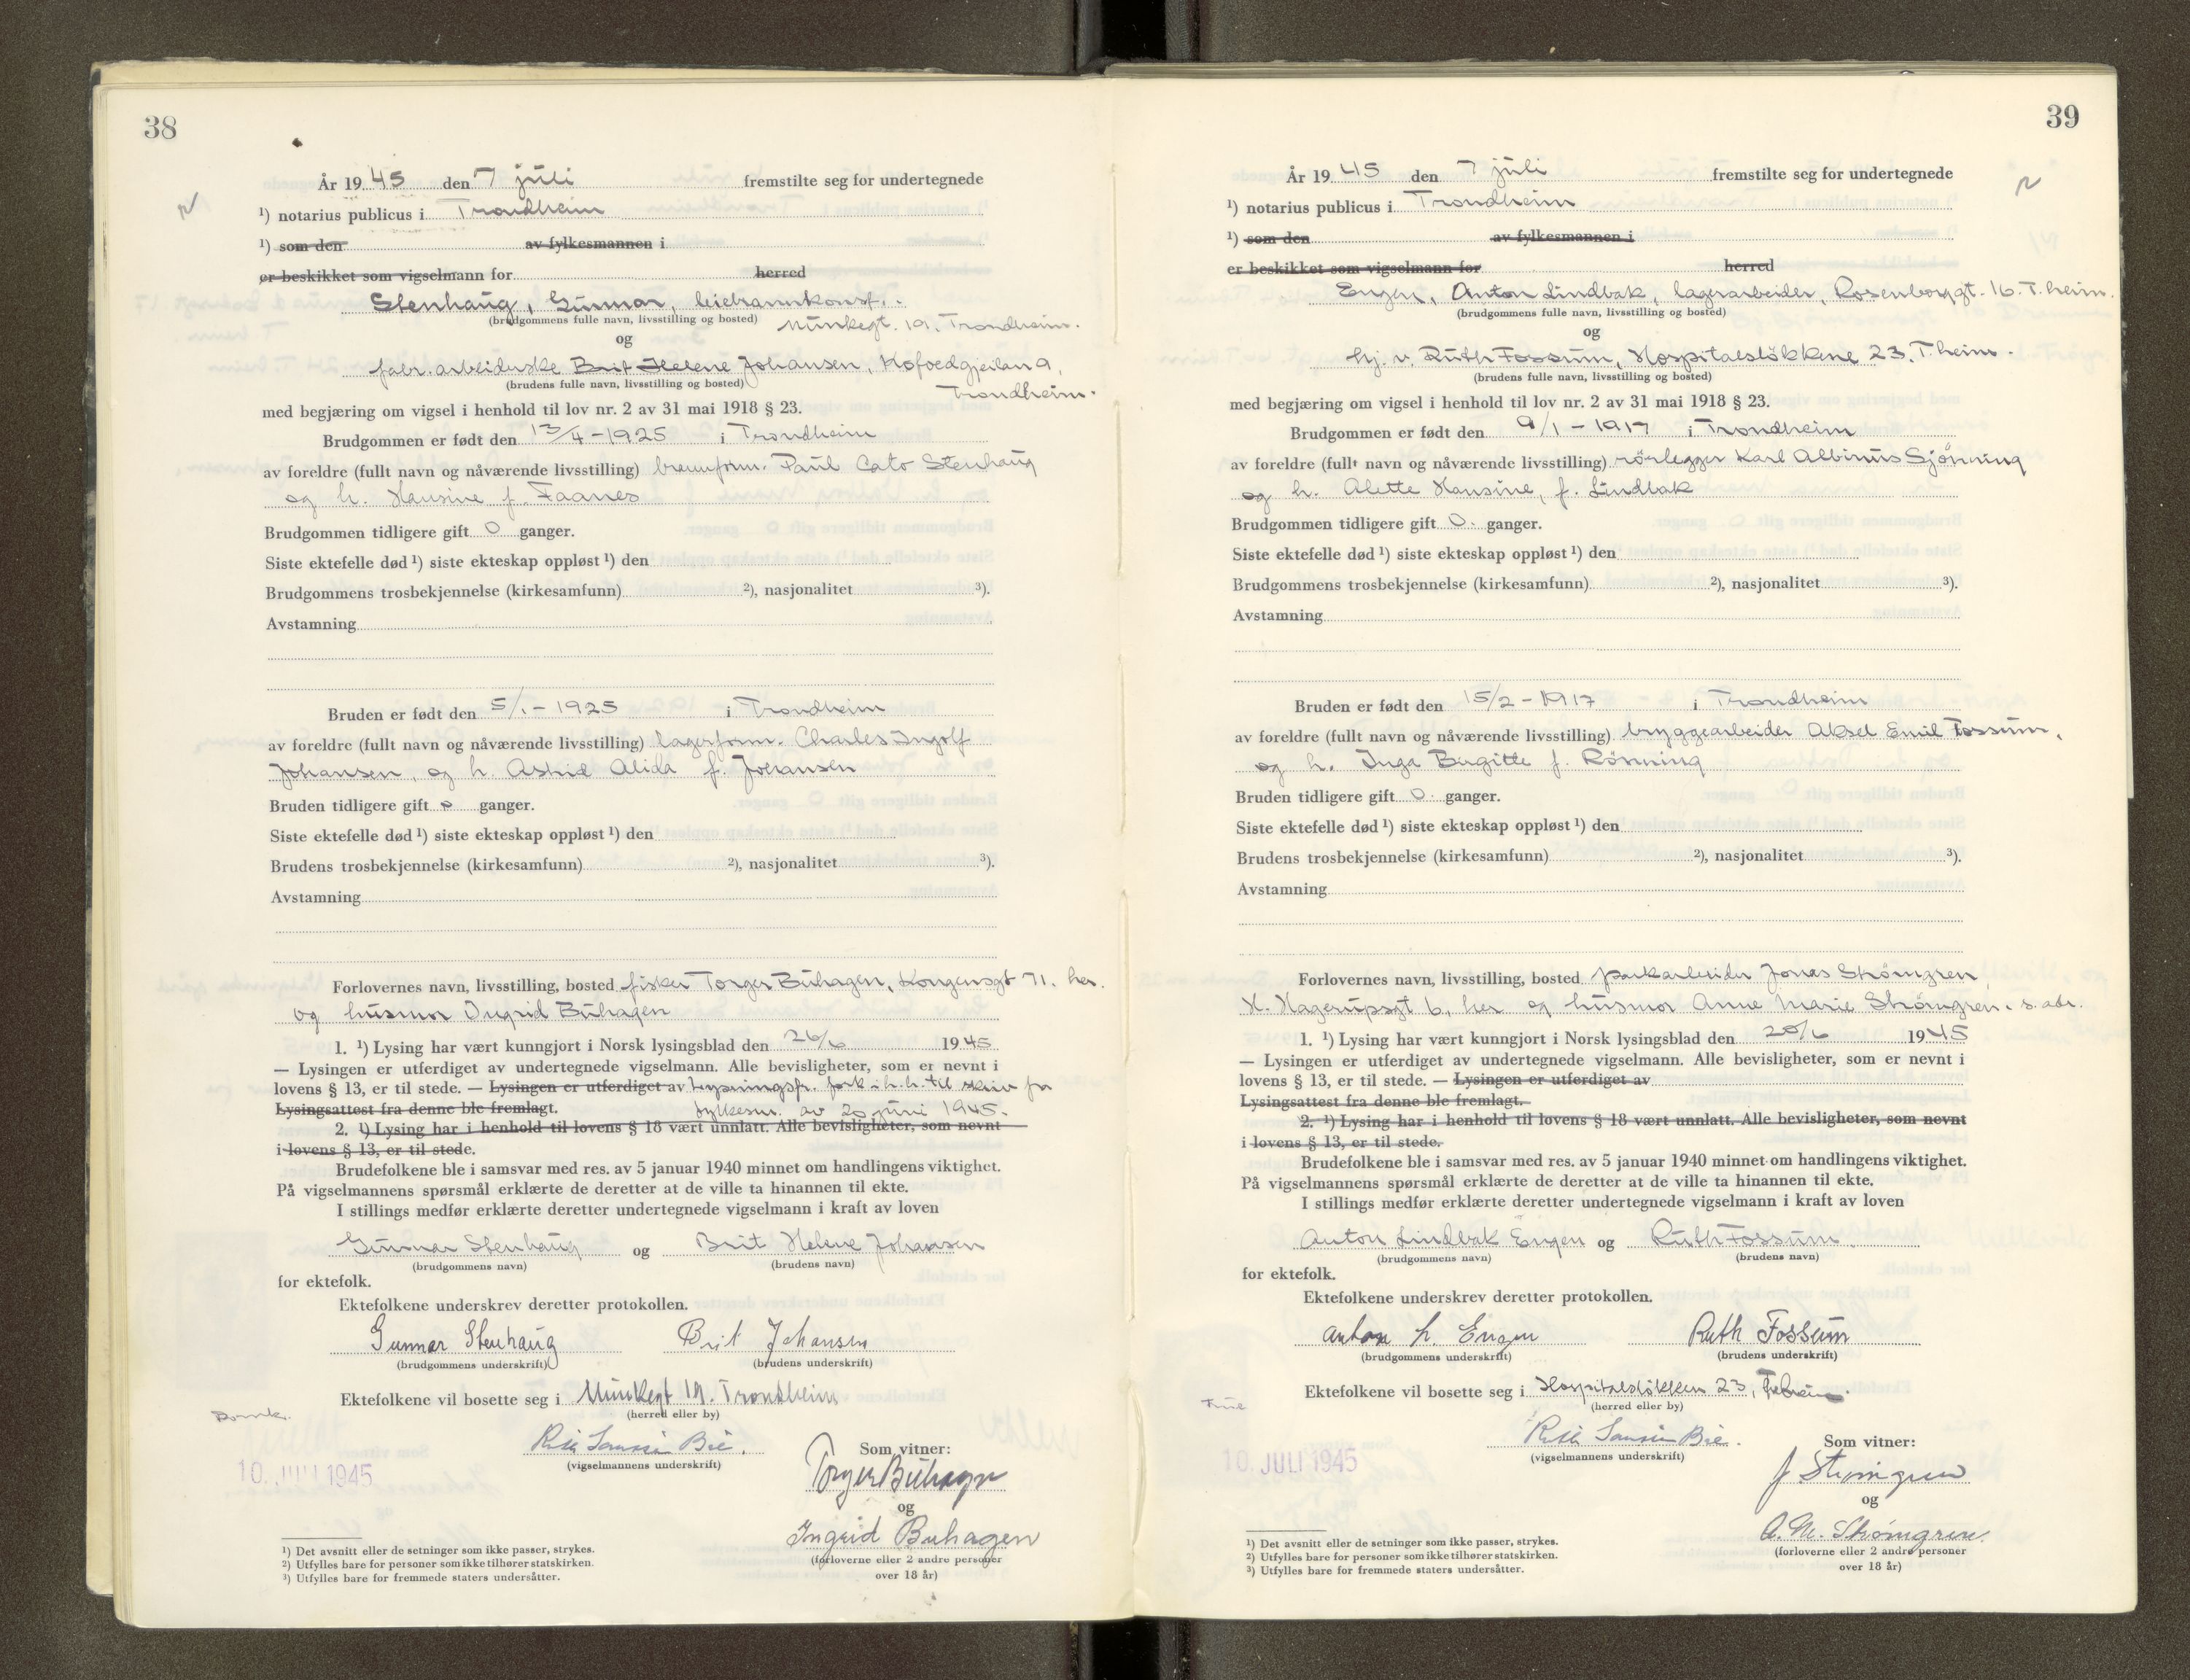 38
År 19 45 den 7 juli fremstilte seg for undertegnede
¹) notarius publicus i Trondheim
¹) som den av fylkesmannen i
er beskikket som vigselmann for herred
Stenhaug, Gunnar,
(brudgommens fulle navn, livsstilling og bosted) Munkegt. 19, Trondheim.
og
fabr.arbeiderske Brit Helene Johansen, Kofoedgjeilan 9,
(brudens fulle navn, livsstilling og bosted) Trondheim.
med begjæring om vigsel i henhold til lov nr. 2 av 31 mai 1918 § 23.
Brudgommen er født den 13/4 - 1925 i Trondheim
av foreldre (fullt navn og nåværende livsstilling) brannform. Paul Cato Stenhaug
og h. Hansine f. Faanes
Brudgommen tidligere gift 0 ganger.
Siste ektefelle død ¹) siste ekteskap oppløst ¹) den
Brudgommens trosbekjennelse (kirkesamfunn) ²), nasjonalitet ³).
Avstamning
Bruden er født den 5/1 - 1925 i Trondheim
av foreldre (fullt navn og nåværende livsstilling) lagerform. Charles Ingolf
Johansen, og h. Astrid Alida f. Johansen
Bruden tidligere gift 0 ganger.
Siste ektefelle død ¹) siste ekteskap oppløst ¹) den
Brudens trosbekjennelse (kirkesamfunn) ²), nasjonalitet ³).
Avstamning
Forlovernes navn, livsstilling, bosted fisker Torger Buhagen, Kongensgt 71. her.
og husmor Ingrid Buhagen
1. ¹) Lysing har vært kunngjort i Norsk lysingsblad den 26/6 1945
— Lysingen er utferdiget av undertegnede vigselmann. Alle bevisligheter, som er nevnt i
lovens § 13, er til stede. — Lysingen er utferdiget av lysningsfr. fork. i h. h. til skriv fra
Lysingsattest fra denne ble fremlagt. fylkesm. av 20 juni 1945.
2. ¹) Lysing har i henhold til lovens § 18 vært unnlatt. Alle bevisligheter, som nevnt
i lovens § 13, er til stede.
Brudefolkene ble i samsvar med res. av 5 januar 1940 minnet om handlingens viktighet.
På vigselmannens spørsmål erklærte de deretter at de ville ta hinannen til ekte.
I stillings medfør erklærte deretter undertegnede vigselmann i kraft av loven
Gunnar Stenhaug og Brit Helene Johansen
(brudgommens navn) (brudens navn)
for ektefolk.
Ektefolkene underskrev deretter protokollen.
Gunnar Stenhaug Brit Johansen
(brudgommens underskrift) (brudens underskrift)
Ektefolkene vil bosette seg i Munkegt 19. Trondheim
(herred eller by)
Som vitner:
(vigselmannens underskrift) Torger Buhagen
10. JULI 1945
og
Ingrid Buhagen
(forloverne eller 2 andre personer
over 18 år)
¹) Det avsnitt eller de setninger som ikke passer, strykes.
²) Utfylles bare for personer som ikke tilhører statskirken.
³) Utfylles bare for fremmede staters undersåtter.
39
År 19 45 den 7 juli fremstilte seg for undertegnede
¹) notarius publicus i Trondheim
¹) som den av fylkesmannen i
er beskikket som vigselmann for herred
Engen, Anton Lindbak, lagerarbeider, Rosenborggt. 16. T.heim.
(brudgommens fulle navn, livsstilling og bosted)
og
hj. v. Ruth Fossum, Hospitalsløkkene 23, T.heim.
(brudens fulle navn, livsstilling og bosted)
med begjæring om vigsel i henhold til lov nr. 2 av 31 mai 1918 § 23.
Brudgommen er født den 9/1 - 1917 i Trondheim
av foreldre (fullt navn og nåværende livsstilling) rørlegger Karl Albinus Sjønning
og h. Alette Hansine, f. Lindbak
Brudgommen tidligere gift 0. ganger.
Siste ektefelle død ¹) siste ekteskap oppløst ¹) den
Brudgommens trosbekjennelse (kirkesamfunn) ²), nasjonalitet ³).
Avstamning
Bruden er født den 15/2 - 1917 i Trondheim
av foreldre (fullt navn og nåværende livsstilling) bryggearbeider Aksel Emil Fossum,
og h. Inga Birgitte f. Rønning
Bruden tidligere gift 0. ganger.
Siste ektefelle død ¹) siste ekteskap oppløst ¹) den
Brudens trosbekjennelse (kirkesamfunn) ²), nasjonalitet ³).
Avstamning
Forlovernes navn, livsstilling, bosted parkarbeider Jonas Strømgren
H. Hagerupsgt 6, her og husmor Anne Marie Strømgren, s. adr.
1. ¹) Lysing har vært kunngjort i Norsk lysingsblad den 1945
— Lysingen er utferdiget av undertegnede vigselmann. Alle bevisligheter, som er nevnt i
lovens § 13, er til stede. — Lysingen er utferdiget av
Lysingsattest fra denne ble fremlagt.
2. ¹) Lysing har i henhold til lovens § 18 vært unnlatt. Alle bevisligheter, som nevnt
i lovens § 13, er til stede.
Brudefolkene ble i samsvar med res. av 5 januar 1940 minnet om handlingens viktighet.
På vigselmannens spørsmål erklærte de deretter at de ville ta hinannen til ekte.
I stillings medfør erklærte deretter undertegnede vigselmann i kraft av loven
Anton Lindbak Engen og Ruth Fossum.
(brudgommens navn) (brudens navn)
for ektefolk.
Ektefolkene underskrev deretter protokollen.
Anton L. Engen Ruth Fossum
(brudgommens underskrift) (brudens underskrift)
Ektefolkene vil bosette seg i Hospitalsløkken 23, T.heim.
(herred eller by)
Som vitner:
(vigselmannens underskrift) J Strømgren
10. JULI 1945
og
A. M. Strømgren.
(forloverne eller 2 andre personer
over 18 år)
¹) Det avsnitt eller de setninger som ikke passer, strykes.
²) Utfylles bare for personer som ikke tilhører statskirken.
³) Utfylles bare for fremmede staters undersåtter.